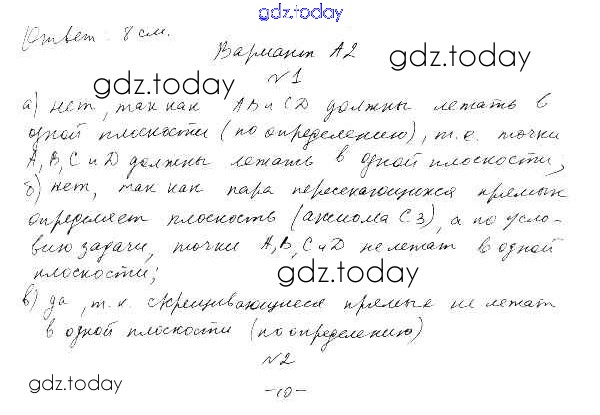 gdz.today
Ответ: 8 см.
Вариант А2
gdz.today
gdz.today
№1
а) нет, так как АВ и CD должны лежать в
одной плоскости (по определению), т.е. точки
А, В, С и D должны лежать в одной плоскости;
б) нет, так как пара пересекающихся прямых
определяет плоскость (аксиома С3), а по усло-
вию задачи, точки А, В, С и D не лежат в одной
плоскости;
gdz.today
в) да, т.к. скрещивающиеся прямые не лежат
в одной плоскости (по определению)
№2
gdz.today
gdz.today
-10-